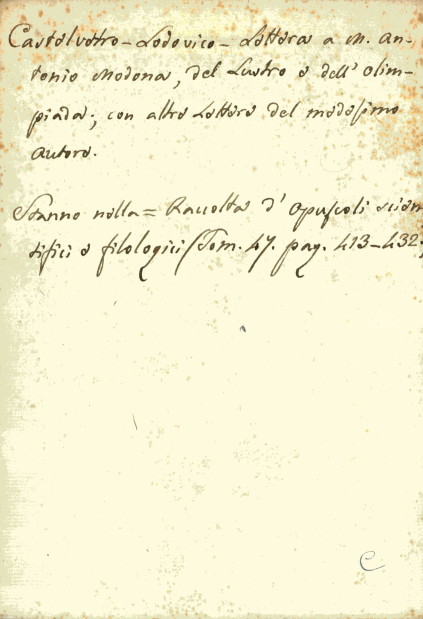 Castelvetro - Lodovico - Lettera a M. An-
tonio Modona, del Lustro e dell' Olim-
piada; con altre Lettere del medesimo
autore.
Stanno nella = Raccolta d' Opuscoli scien
tifici e filologici (Tom. 47. pag. 413-432.
C